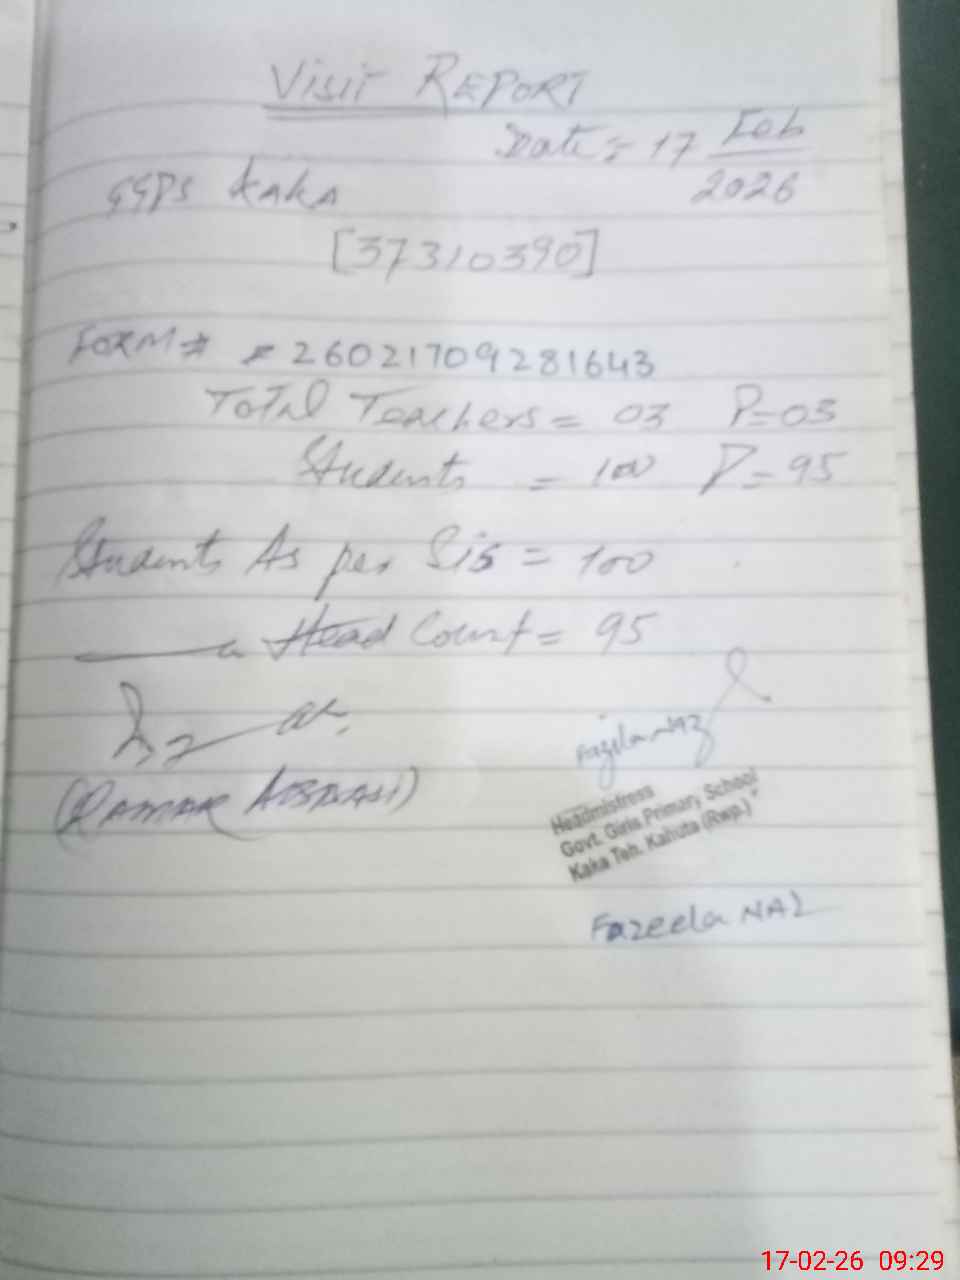 Visit REPORT
Date = 17 Feb
2026
GGPS KAKA
[37310390]
FORM # = 26021709281643
Total Teachers = 03 P=03
Students = 100 P=95
Students As per Sis = 100
Head Count = 95
Fazila NAZ
(QAMAR ABBASI)
Headmistress
Govt. Girls Primary School
Kaka Teh. Kahuta (Rwp.)
Fazeela NAZ
17-02-26 09:29